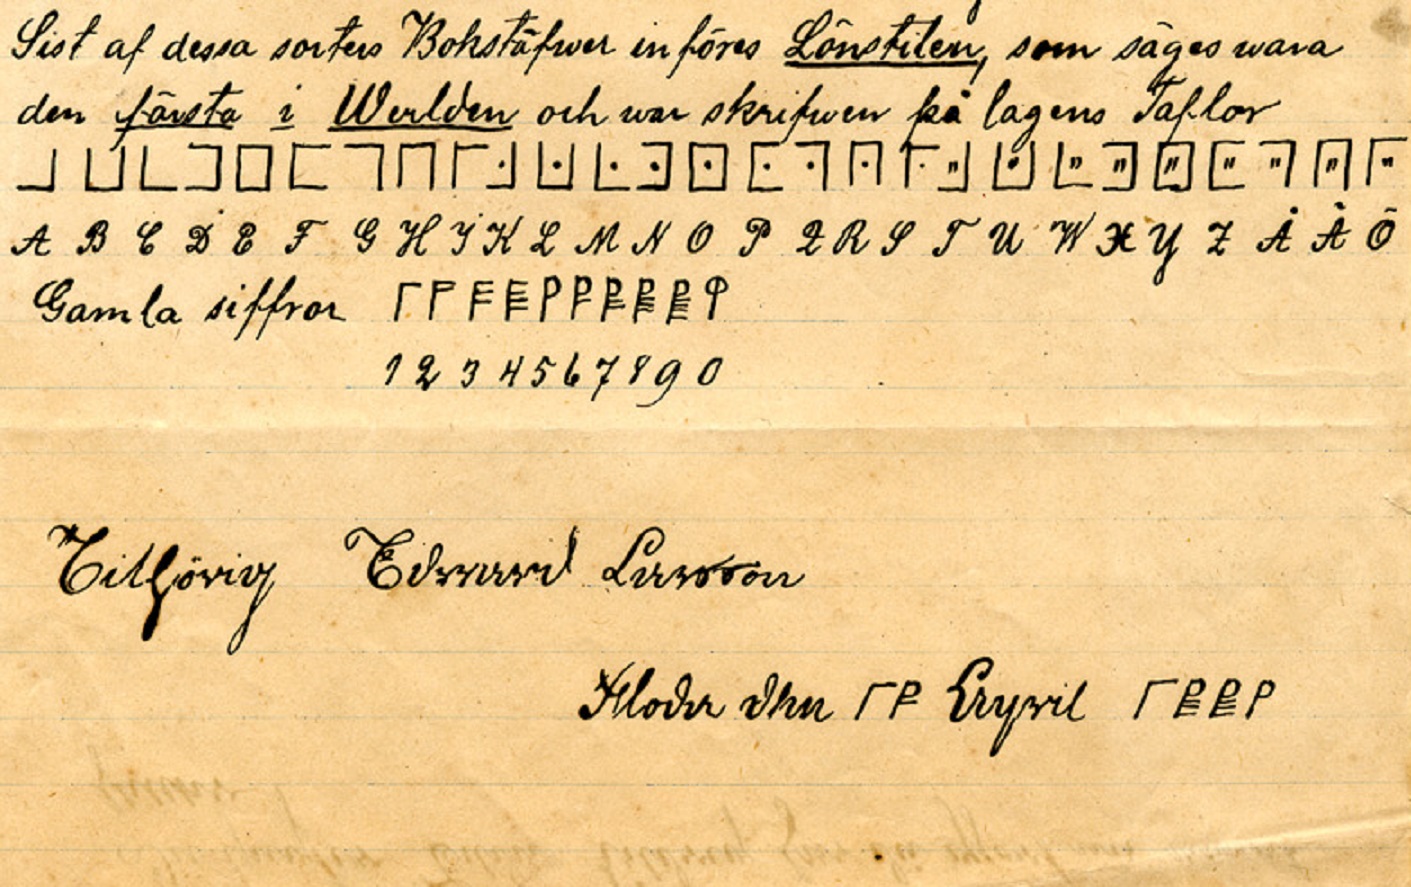 Sist af dessa sorters Bokstäfwer införes Lönstilen, som säges wara
den första i Werlden och war skrifwen på lagens Taflor
A B C D E F G H I K L M N O P Q R S T U W X Y Z Å Ä Ö
Gamla siffror
1 2 3 4 5 6 7 8 9 0
Tillhörig Edward Larsson
Floda den April